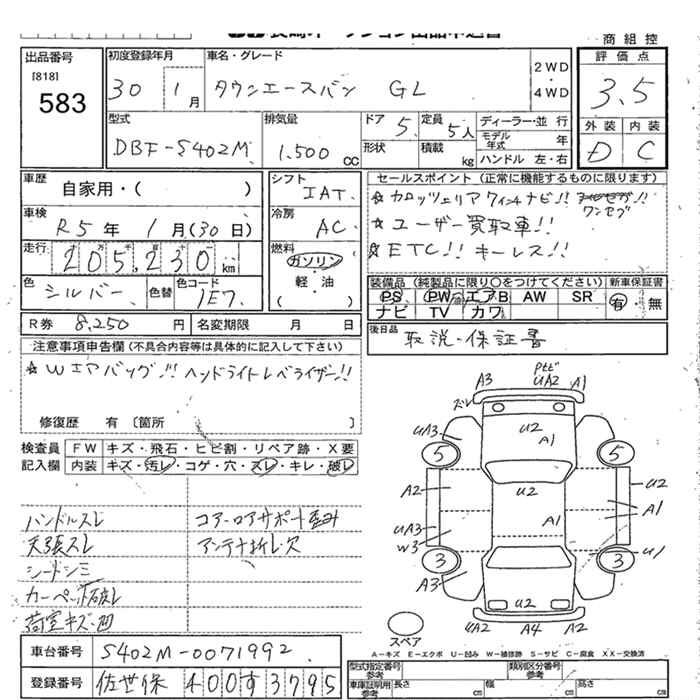 商組控
出品番号
[818]
583
初度登録年月
30 1月
車名・グレード
タウンエースバン GL
2WD
・
4WD
評価点
3.5
外装 内装
D C
型式
DBF-S402M
排気量
1.500 cc
ドア 5
形状
定員 5人
積載 kg
ディーラー・並行
モデル年式 年
ハンドル 左・右
車歴
自家用・( )
車検
R5年 1月(30日)
走行
205,230km
シフト
IAT
冷房
AC
燃料
ガソリン
・
軽・油
( )
色
シルバー
色替
色コード
1E7
R券 8,250 円
名変期限 月 日
セールスポイント(正常に機能するものに限ります)
☆カロッツェリア7インチナビ!!
ワンセグ
☆ユーザー買取車!!
☆ETC!!キーレス!!
装備品(純製品に限り○をつけてください) 新車保証書
PS PW エアB AW SR
ナビ TV カワ
有・無
後日品
取説・保証書
注意事項申告欄(不具合内容等は具体的に記入して下さい)
☆Wエアバッグ!!ヘッドライトレベライザー!!
修復歴 有〔箇所 〕
検査員 FW キズ・飛石・ヒビ割・リペア跡・X要
記入欄 内装 キズ・汚レ・コゲ・穴・スレ・キレ・破レ
ハンドルスレ コアーロアサポート歪み
天張スレ アンテナ折レ欠
シートシミ
カーペット破レ
荷室キズ・凹
A3 Ptビ UA2 A1
ズレ
UA3 U2 A1
5 5
A2 U2 U2
A1
UA3 A1
W3 U1
3 3
A3
U2 U2
UA2 A4 A2
スペア
A-キズ E-エクボ U-凹み W-補修跡 S-サビ C-腐食 XX-交換済
車台番号 S402M-0071992
登録番号 佐世保 400す3795
型式指定番号
参考
類別区分番号
参考
車庫証明用
参考
長さ cm 幅 cm 高さ cm